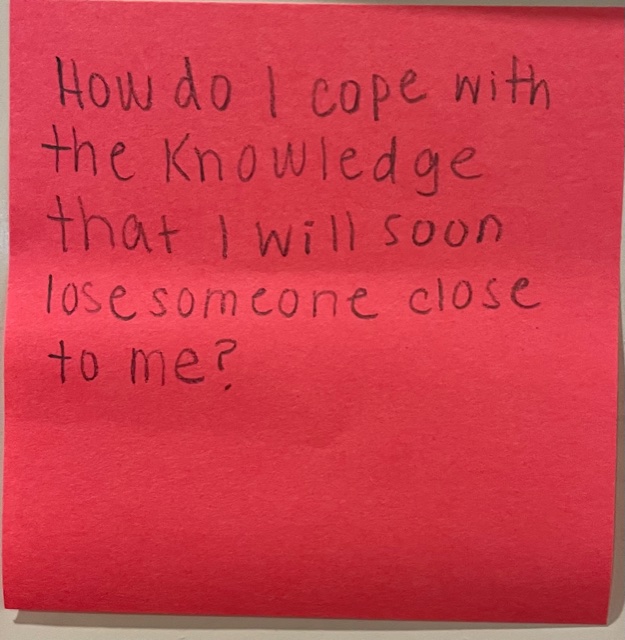 How do I cope with
the Knowledge
that I will soon
lose someone close
to me?